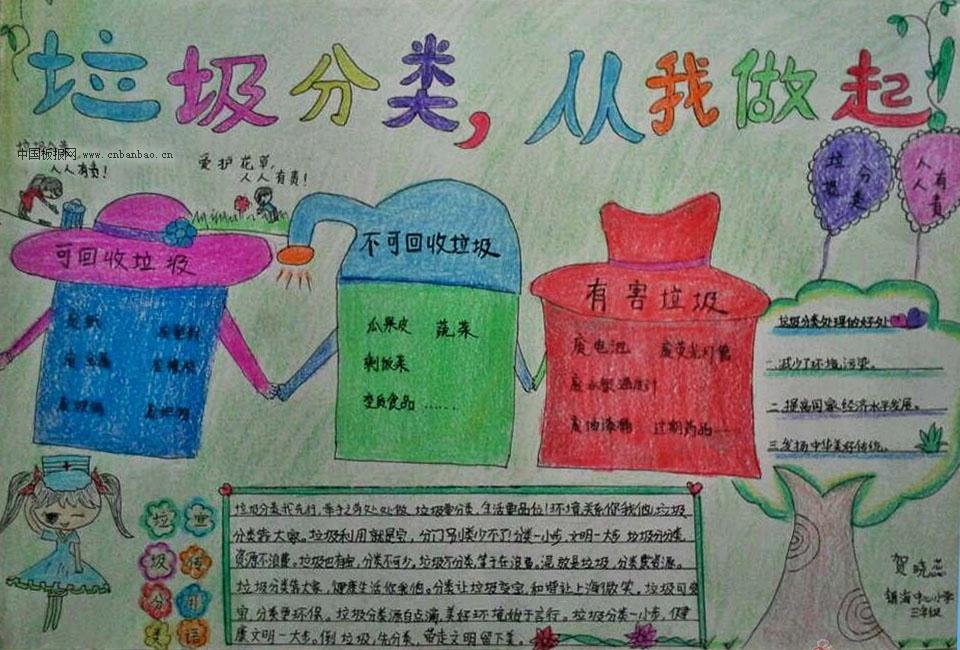 垃圾分类，从我做起！
中国板报网 www.cnbanbao.cn
人人有责！
爱护花草，
人人有责！
可回收垃圾
不可回收垃圾
瓜果皮 蔬菜
剩饭菜
变质食品……
有害垃圾
废电池 废荧光灯管
废水银温度计
废油漆桶 过期药品……
垃圾分类
人人有责
垃圾分类处理的好处
一.减少了环境污染。
二.提高国家经济水平发展。
三.发扬中华美好传统。
垃圾分类
宣传用语
垃圾分类我先行,举手之劳处处做,垃圾要分类,生活要品位!环境关系你我他,垃圾
分类靠大家。垃圾利用就是宝,分门别类少不了!分类一小步,文明一大步,垃圾分分类
资源不浪费。垃圾也有家,分类不可少。垃圾不分类,等于在浪费,混放是垃圾,分类
垃圾分类靠大家,健康生活你我他。分类让垃圾变宝,和谐让上海微笑。垃圾可变
宝,分类更环保。垃圾分类源自点滴,美好环境始于言行。垃圾分类一小步,健
康文明一大步。倒垃圾,先分类,带走文明留下美。
贺晓
镇海中心小学
三年级